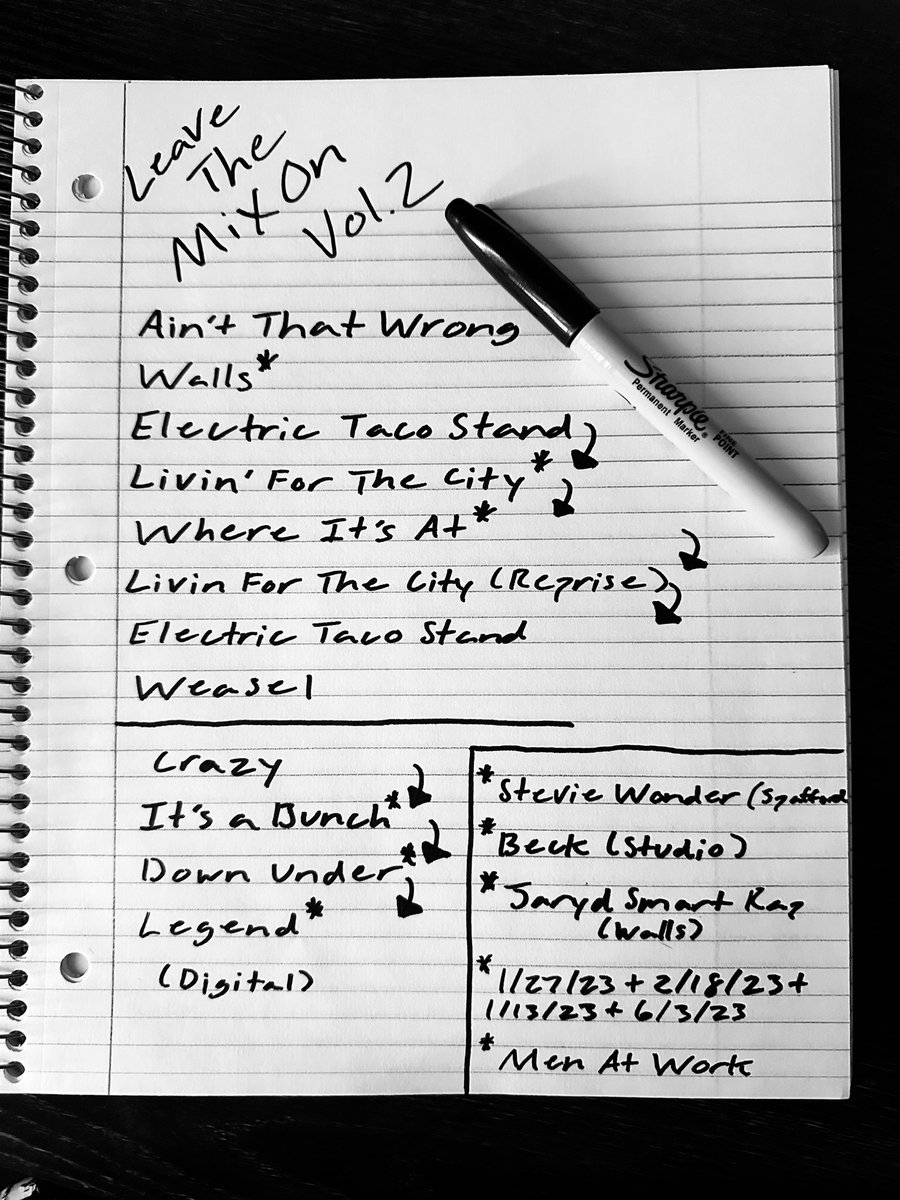 Leave
The
Mix On
Vol.2
Sharpie®
Permanent Marker
FINE
POINT
Ain't That Wrong
Walls*
Electric Taco Stand
Livin' For The City*
Where It's At*
Livin For The City (Reprise)
Electric Taco Stand
Weasel
Crazy
It's a Bunch*
Down Under*
Legend*
(Digital)
*Stevie Wonder (Spafford
*Beck (Studio)
*Jaryd Smart Rap
(Walls)
*1/27/23 + 2/18/23 +
1/13/23 + 6/3/23
*Men At Work